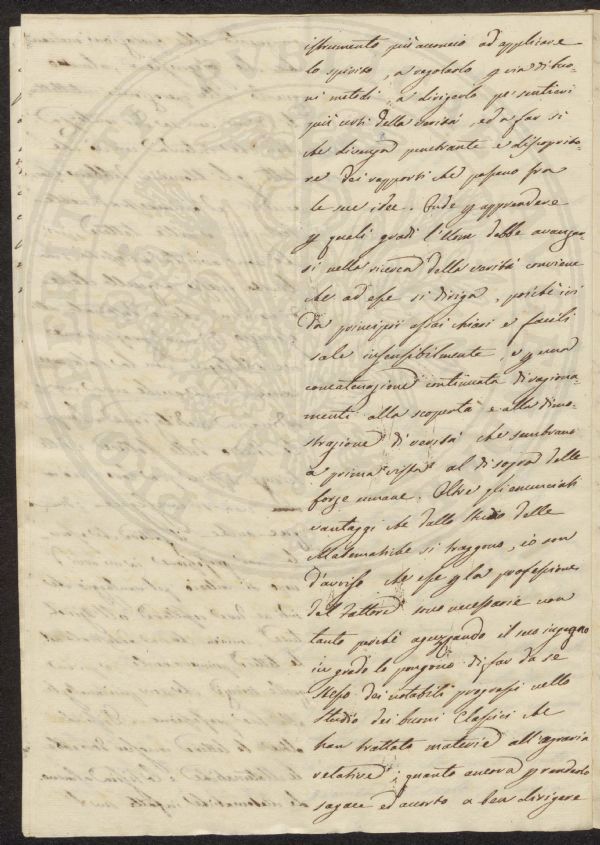 istrumento più acconcio ad applicare
lo spirito, a regolarlo p via di buo-
ni metodi, a dirigerlo pe' sentieri
più certi della verità, ed a far sì
che divenga penetrante e discoprito-
re dei rapporti che passano fra
le sue idee. Onde p apprendere
p quali gradi l'Uom debbe avanzar-
si nella ricerca della verità conviene
che ad esse si diriga, poichè ivi
da principii assai chiari e facili
sale insensibilmente, e p una
concatenazione continuata di ragiona-
menti alla scoperta e alla dimo-
strazione di verità che sembrano
a prima vista al di sopra delle
forze umane. Oltre gli enunciati
vantaggi che dallo studio delle
Matematiche si traggono, io son
d'avviso che esse p la professione
del fattore sono necessarie non
tanto perchè aguzzando il suo ingegno
in grado lo pongono di far da se
stesso dei notabili progressi nello
studio dei buoni Classici che
han trattato materie all'agraria
relative; quanto ancora p renderlo
sagace ed accorto a ben dirigere